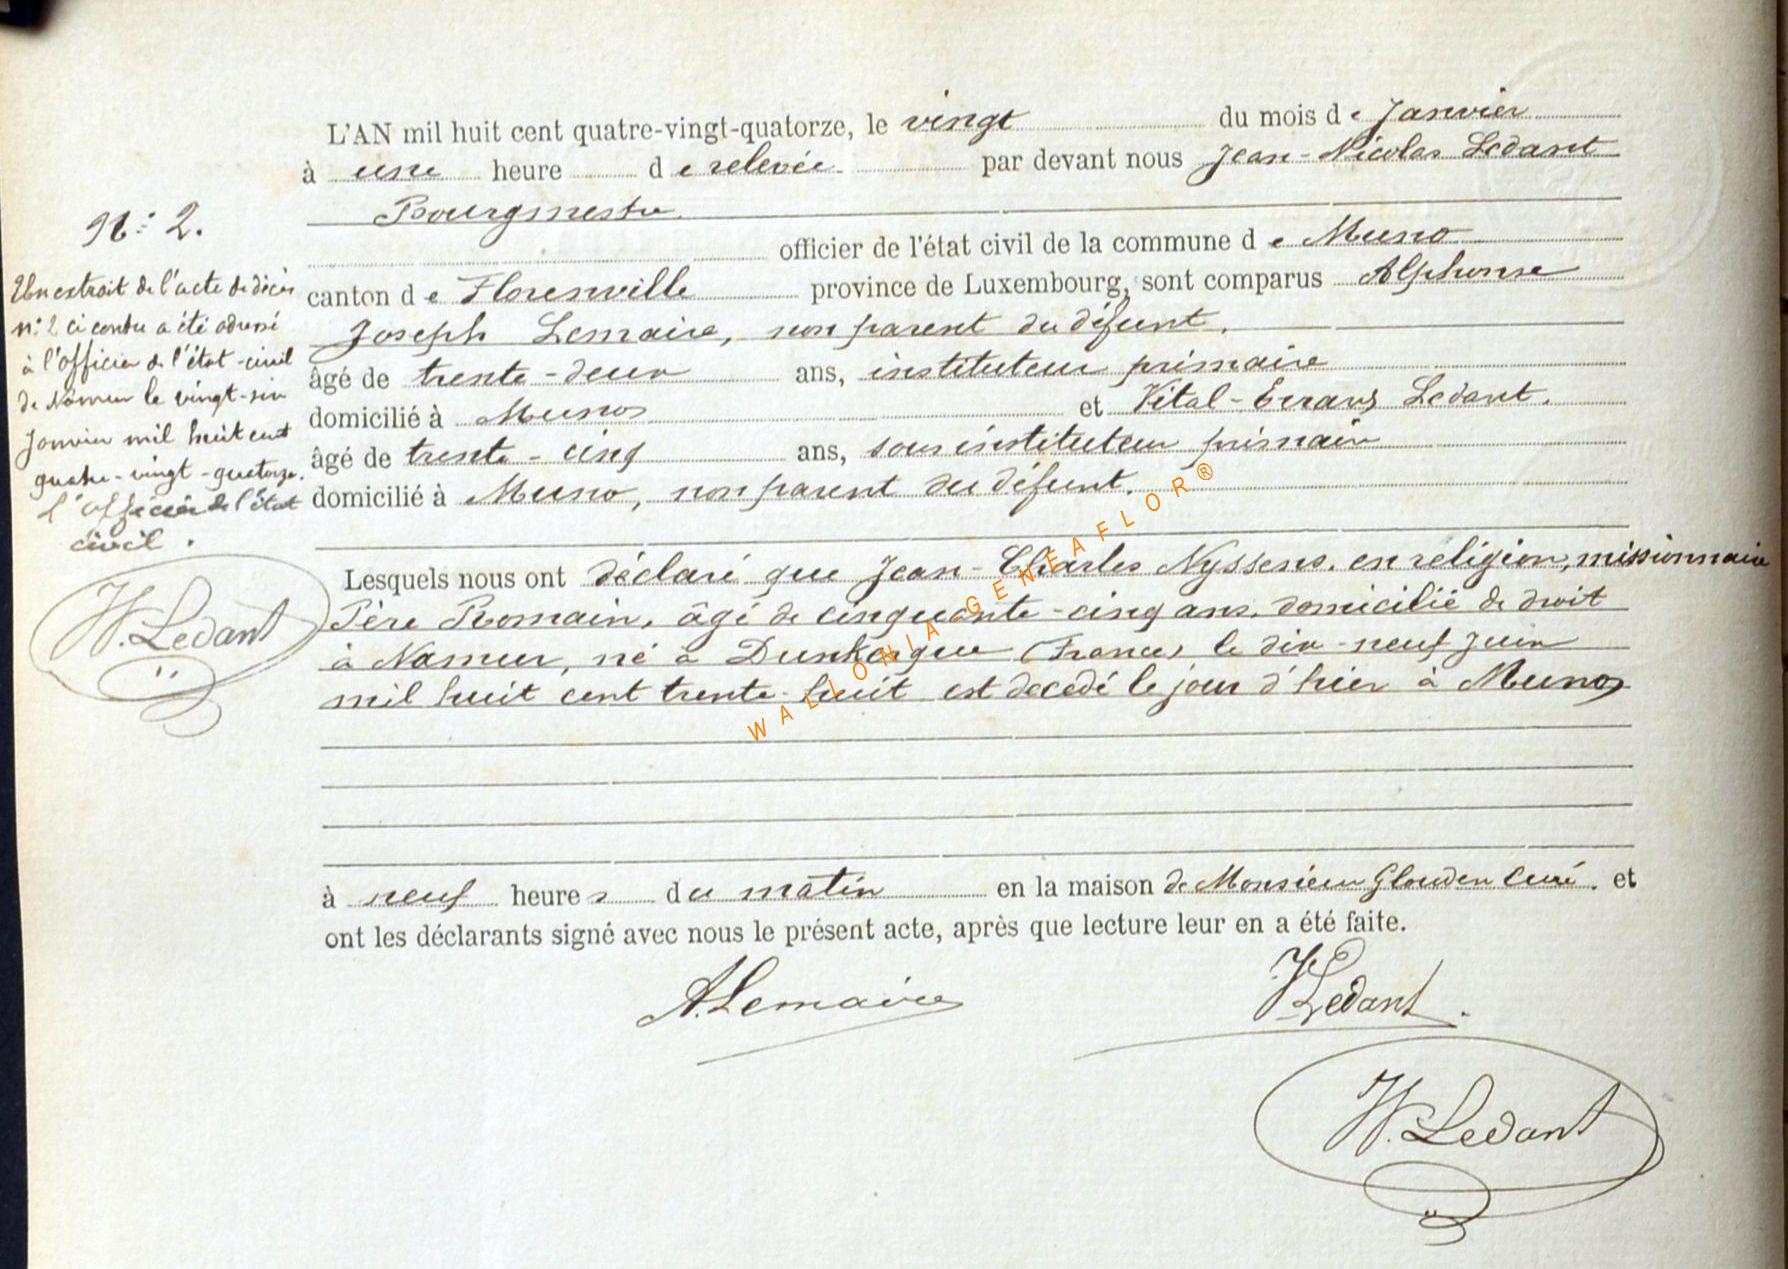 L'AN mil huit cent quatre-vingt-quatorze, le vingt du mois de Janvier
à une heure de relevée par devant nous Jean-Nicolas Ledant
Bourgmestre
officier de l'état civil de la commune de Muno
canton de Florenville province de Luxembourg, sont comparus Alphonse
Joseph Lemaire, non parent du défunt,
âgé de trente-deux ans, instituteur primaire
domicilié à Muno et Vital- Ledant,
âgé de trente-cinq ans, sous instituteur primaire
domicilié à Muno, non parent du défunt.
Lesquels nous ont déclaré que Jean-Charles Nyssens, en religion, missionnaire
Père Romain, âgé de cinquante-cinq ans, domicilié de droit
à Namur, né à Dunkerque (France) le dix-neuf Juin
mil huit cent trente-huit est décédé le jour d'hier à Muno
à neuf heures du matin en la maison de Monsieur Glouden curé. et
ont les déclarants signé avec nous le présent acte, après que lecture leur en a été faite.
A. Lemaire
V Ledant.
N. Ledant
N° 2.
Un extrait de l'acte de décès
n° 2 ci contre a été adressé
à l'officier de l'état-civil
de Namur le vingt-six
Janvier mil huit cent
quatre-vingt-quatorze.
l'officier de l'état
civil.
N. Ledant
WALLONIA GENEAFLOR®